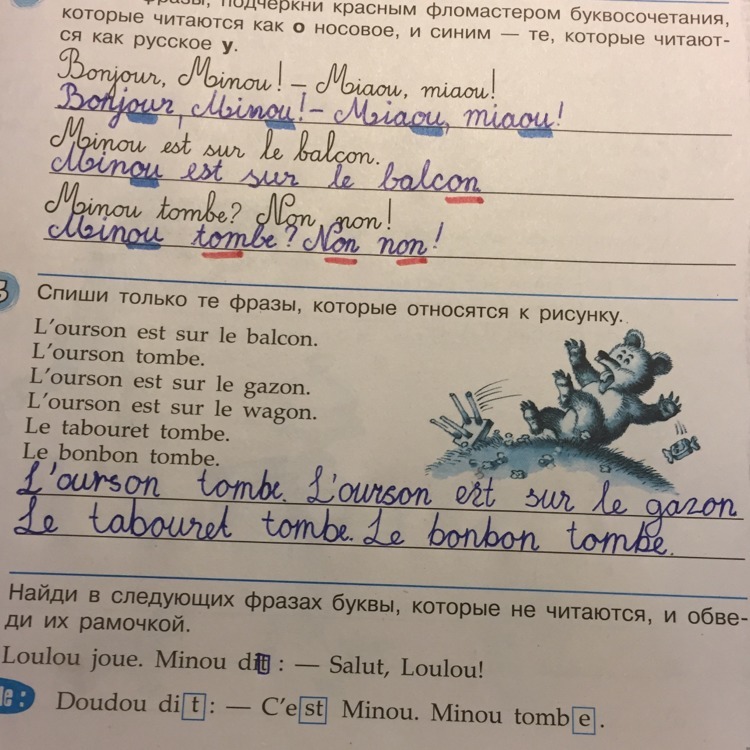 фразы, подчеркни красным фломастером буквосочетания,
которые читаются как о носовое, и синим — те, которые читают-
ся как русское у.
Bonjour, Minou! – Miaou, miaou!
Bonjour, Minou! – Miaou, miaou!
Minou est sur le balcon.
Minou est sur le balcon
Minou tombe? Non, non!
Minou tombe? Non non!
Спиши только те фразы, которые относятся к рисунку.
L'ourson est sur le balcon.
L'ourson tombe.
L'ourson est sur le gazon.
L'ourson est sur le wagon.
Le tabouret tombe.
Le bonbon tombe.
L'ourson tombe. L'ourson est sur le gazon
Le tabouret tombe. Le bonbon tombe.
Найди в следующих фразах буквы, которые не читаются, и обве-
ди их рамочкой.
Loulou joue. Minou dit : — Salut, Loulou!
Doudou dit : — C'est Minou. Minou tombe.